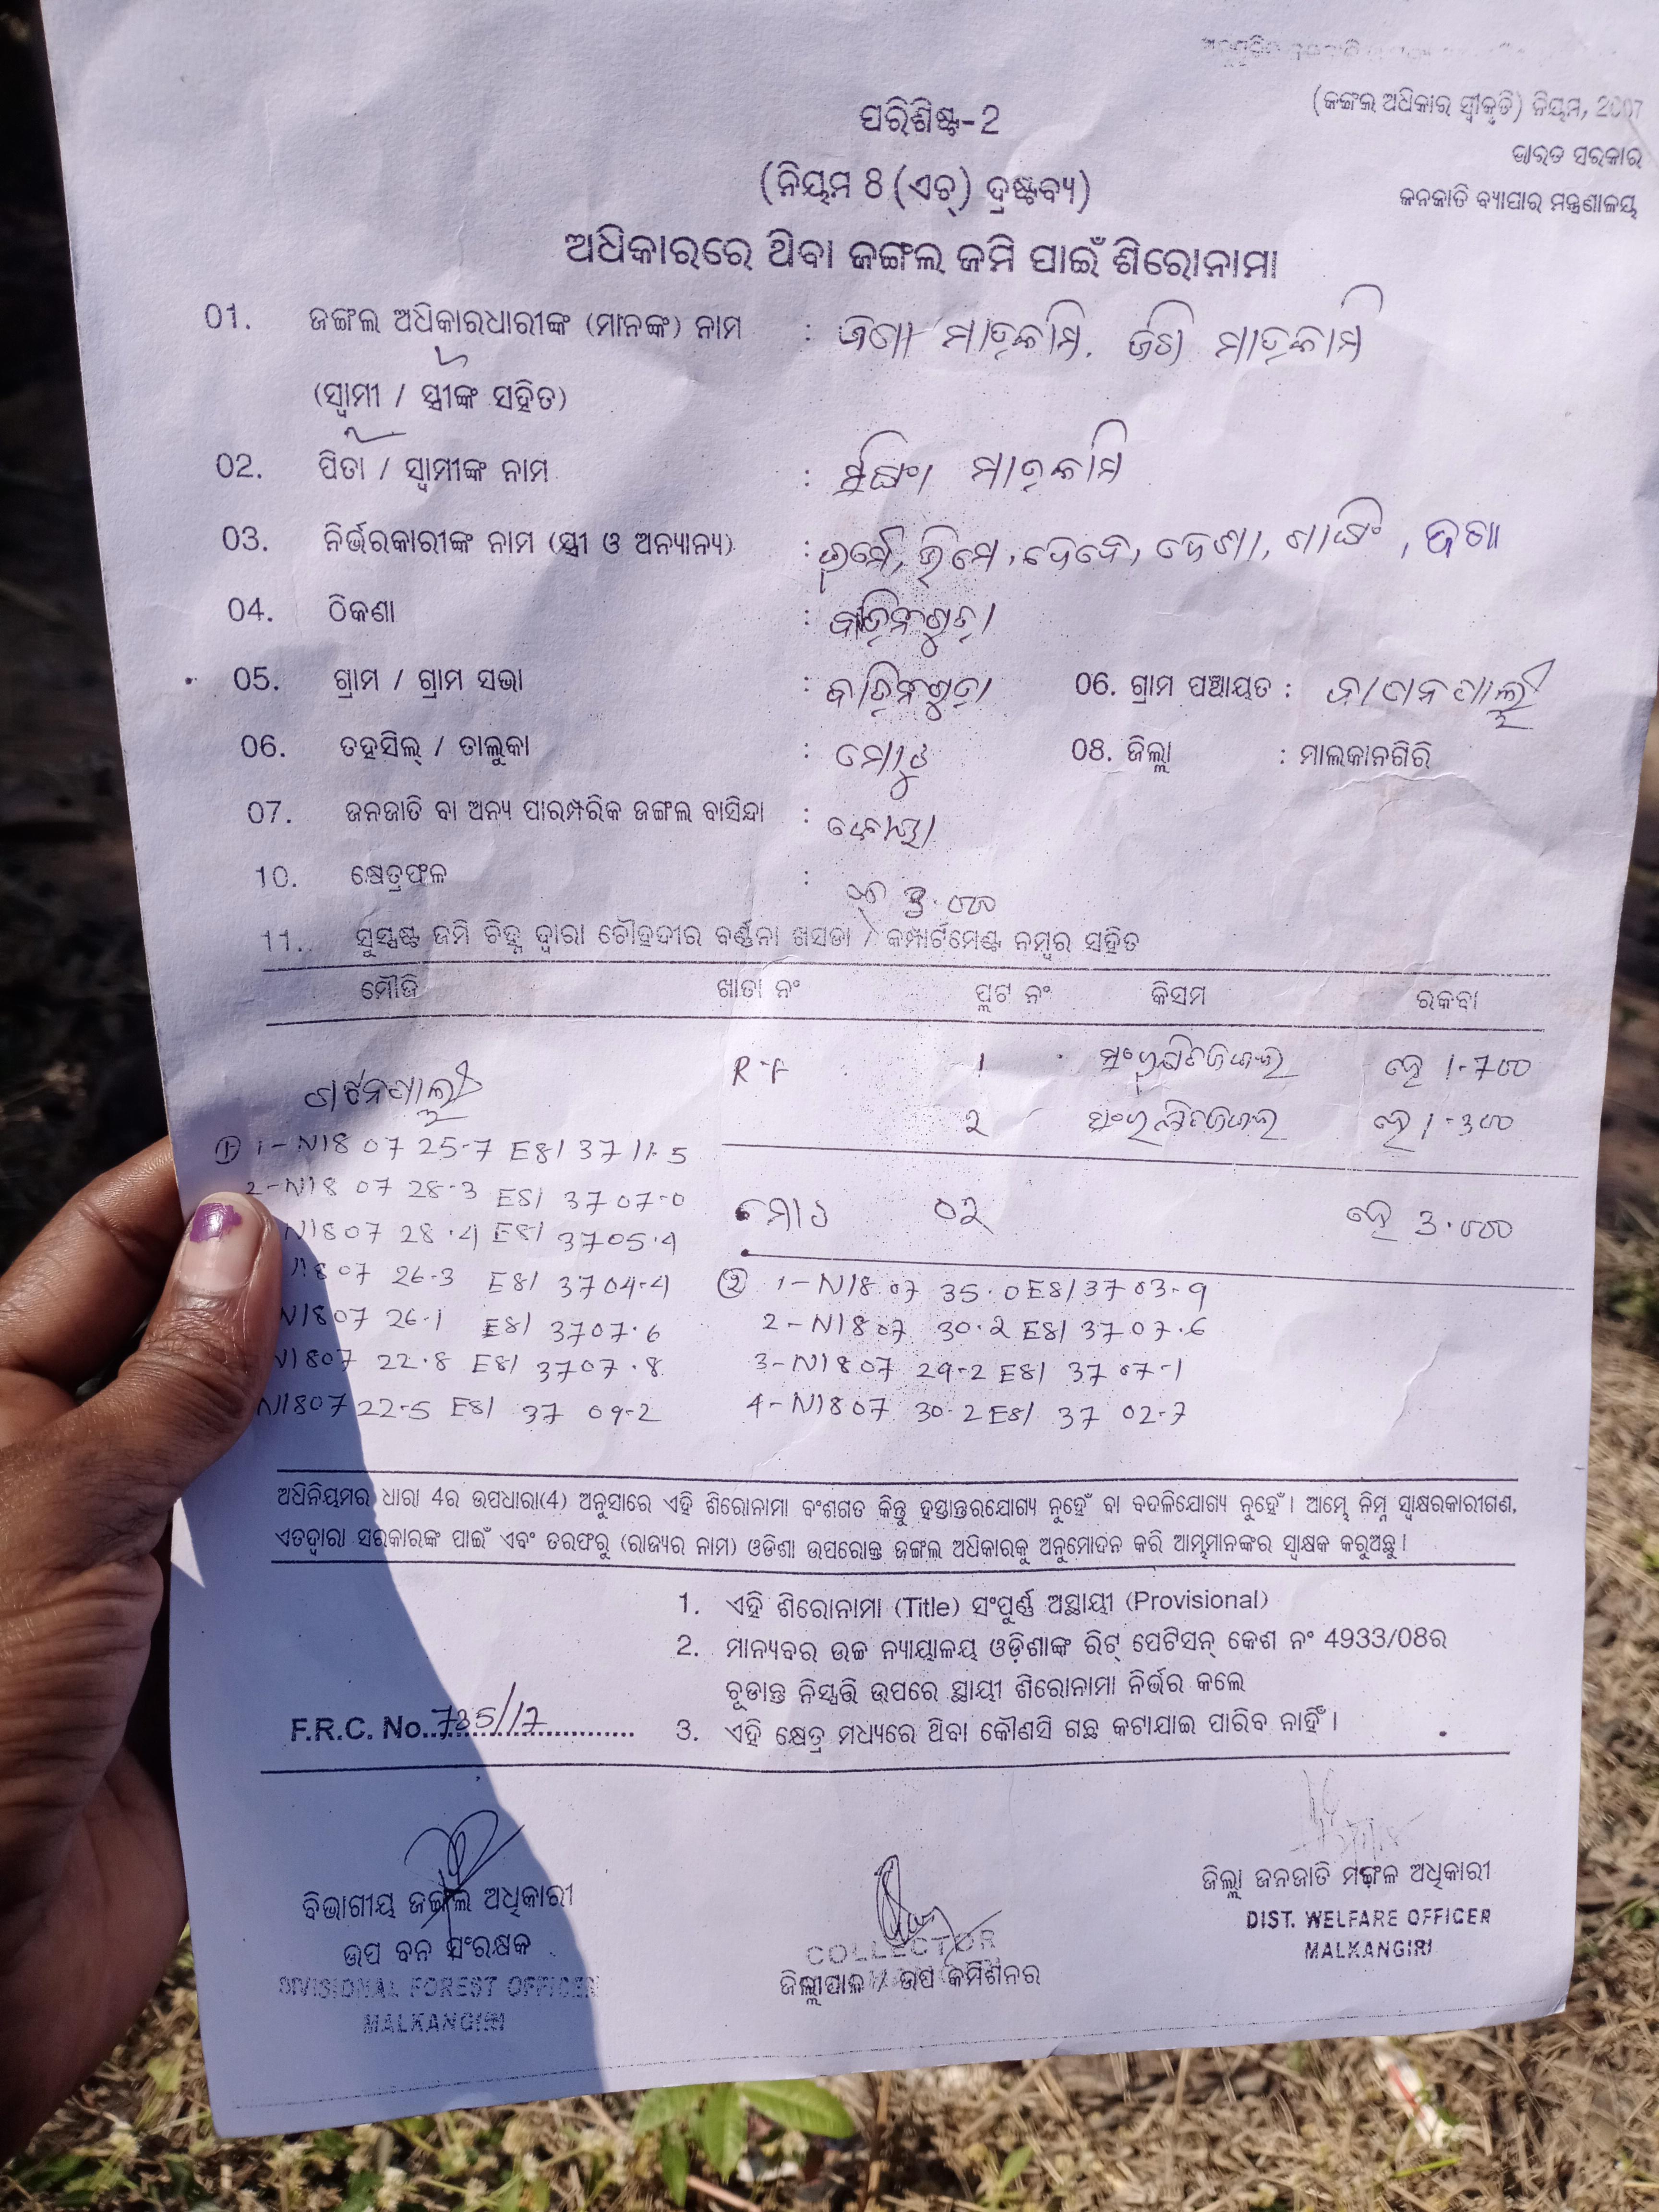 (ଜଙ୍ଗଲ ଅଧିକାର ସ୍ୱୀକୃତି) ନିୟମ, 2007
ଭାରତ ସରକାର
ଜନଜାତି ବ୍ୟାପାର ମନ୍ତ୍ରଣାଳୟ
ପରିଶିଷ୍ଟ-2
(ନିୟମ 8 (ଏଚ୍) ଦ୍ରଷ୍ଟବ୍ୟ)
ଅଧିକାରରେ ଥିବା ଜଙ୍ଗଲ ଜମି ପାଇଁ ଶିରୋନାମା
01. ଜଙ୍ଗଲ ଅଧିକାରଧାରୀଙ୍କ (ମାନଙ୍କ) ନାମ : ମାଡ଼କାମି, ମାଡ଼କାମି
(ସ୍ୱାମୀ / ସ୍ତ୍ରୀଙ୍କ ସହିତ)
02. ପିତା / ସ୍ୱାମୀଙ୍କ ନାମ : ମାଡ଼କାମି
03. ନିର୍ଭରକାରୀଙ୍କ ନାମ (ସ୍ତ୍ରୀ ଓ ଅନ୍ୟାନ୍ୟ) :
04. ଠିକଣା :
05. ଗ୍ରାମ / ଗ୍ରାମ ସଭା : 06. ଗ୍ରାମ ପଞ୍ଚାୟତ :
06. ତହସିଲ୍ / ତାଲୁକା : 08. ଜିଲ୍ଲା : ମାଲକାନଗିରି
07. ଜନଜାତି ବା ଅନ୍ୟ ପାରମ୍ପରିକ ଜଙ୍ଗଲ ବାସିନ୍ଦା : କୋୟା
10. କ୍ଷେତ୍ରଫଳ : ହେ 3.000
11. ସୁସ୍ପଷ୍ଟ ଜମି ଚିହ୍ନ ଦ୍ୱାରା ଚୌହଦୀର ବର୍ଣ୍ଣନା ଖସଡା / କମ୍ପାର୍ଟମେଣ୍ଟ ନମ୍ବର ସହିତ
ମୌଜି ଖାତା ନଂ ପ୍ଲଟ ନଂ କିସମ ରକବା
R-F ୧ ସଂରକ୍ଷିତ ଜଙ୍ଗଲ ହେ 1-700
୨ ସଂରକ୍ଷିତ ଜଙ୍ଗଲ ହେ 1-300
ମୋଟ ୦୨ ହେ 3.000
① 1-N18 07 25-7 E81 37 11.5
2-N18 07 28-3 E81 37 07-0
N18 07 28.4 E81 37 05.4
18 07 26-3 E81 37 04-4
N18 07 26-1 E81 37 07.6
N18 07 22.8 E81 37 07.8
N18 07 22-5 E81 37 09-2
② 1-N18 07 35.0 E81 37 03-9
2-N18 07 30.2 E81 37 07.6
3-N18 07 29-2 E81 37 07-1
4-N18 07 30-2 E81 37 02-7
ଅଧିନିୟମର ଧାରା 4ର ଉପଧାରା(4) ଅନୁସାରେ ଏହି ଶିରୋନାମା ବଂଶଗତ କିନ୍ତୁ ହସ୍ତାନ୍ତରଯୋଗ୍ୟ ନୁହେଁ ବା ବଦଳିଯୋଗ୍ୟ ନୁହେଁ । ଆମ୍ଭେ ନିମ୍ନ ସ୍ୱାକ୍ଷରକାରୀଗଣ,
ଏତଦ୍ୱାରା ସରକାରଙ୍କ ପାଇଁ ଏବଂ ତରଫରୁ (ରାଜ୍ୟର ନାମ) ଓଡିଶା ଉପରୋକ୍ତ ଜଙ୍ଗଲ ଅଧିକାରକୁ ଅନୁମୋଦନ କରି ଆମ୍ଭମାନଙ୍କର ସ୍ୱାକ୍ଷକ କରୁଅଛୁ ।
1. ଏହି ଶିରୋନାମା (Title) ସଂପୁର୍ଣ୍ଣ ଅସ୍ଥାୟୀ (Provisional)
2. ମାନ୍ୟବର ଉଚ୍ଚ ନ୍ୟାୟାଳୟ ଓଡ଼ିଶାଙ୍କ ରିଟ୍ ପେଟିସନ୍ କେଶ ନଂ 4933/08ର
ଚୂଡାନ୍ତ ନିସ୍ପତ୍ତି ଉପରେ ସ୍ଥାୟୀ ଶିରୋନାମା ନିର୍ଭର କଲେ
3. ଏହି କ୍ଷେତ୍ର ମଧ୍ୟରେ ଥିବା କୌଣସି ଗଛ କଟାଯାଇ ପାରିବ ନାହିଁ ।
F.R.C. No. 785/17
ବିଭାଗୀୟ ଜଙ୍ଗଲ ଅଧିକାରୀ
ଉପ ବନ ସଂରକ୍ଷକ
DIVISIONAL FOREST OFFICER
MALKANGIRI
COLLECTOR
ଜିଲ୍ଲାପାଳ / ଉପ କମିଶନର
ଜିଲ୍ଲା ଜନଜାତି ମଙ୍ଗଳ ଅଧିକାରୀ
DIST. WELFARE OFFICER
MALKANGIRI